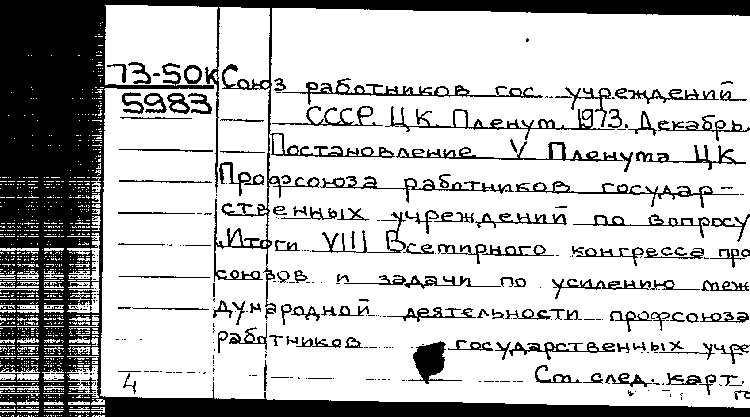 73-50К Союз работников гос. учреждений
5983 СССР. ЦК. Пленум. 1973. Декабрь.
Постановление V Пленума ЦК
Профсоюза работников государ-
ственных учреждений по вопросу
„Итоги VIII Всемирного конгресса про
союзов и задачи по усилению меж
дународной деятельности профсоюза
работников государственных учре
См. след. карт.
4